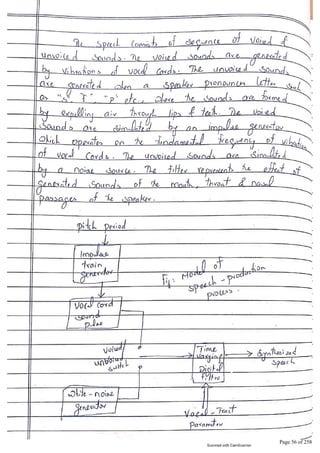 The speech consists of sequence of voiced &
unvoiced sounds. The voiced sounds are generated
by vibrations of vocal cords. The unvoiced sounds
are generated when a speaker pronounces letter such
as "s", "f", "p" etc., where the sounds are formed
by expelling air through lips & teeth. The voiced
sounds are simulated by an impulse generator
which operates on the fundamental frequency of vibration
of vocal cords. The unvoiced sounds are simulated
by a noise source. The filter represents the effect of
generated sounds of the mouth, throat & nasal
passages of the speaker.
pitch period
Impulse
train
generator
Fig: Model of
speech-production
process.
Vocal cord
sound
pulse
Voiced/
unvoiced
switch
Time
Varying
Digital
filter
Synthesized
speech
White-noise
generator
Vocal-Tract
Parameter
Scanned with CamScanner
Page 56 of 258